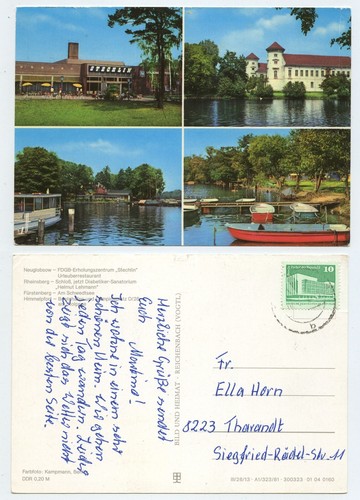 STECHLIN
Neuglobsow - FDGB-Erholungszentrum „Stechlin"
Urlauberrestaurant
Rheinsberg - Schloß, jetzt Diabetiker-Sanatorium
„Helmut Lehmann"
Fürstenberg - Am Schwedtsee
Himmelpfort
Herzliche Grüße sendet
Euch
Manfred!
Ich wohne in einem sehr
schönen Heim. Wir gehen
jeden Tag wandern. Leider
zeigt sich das Wetter nicht
von der besten Seite.
BILD UND HEIMAT · REICHENBACH (VOGTL)
10
DDR
Fr.
Ella Horn
8223 Tharandt
Siegfried-Rädel-Str. 11
Farbfoto: Kampmann,
DDR 0,20 M
III/26/13 · A1/323/81 · 300323 · 01 04 0160